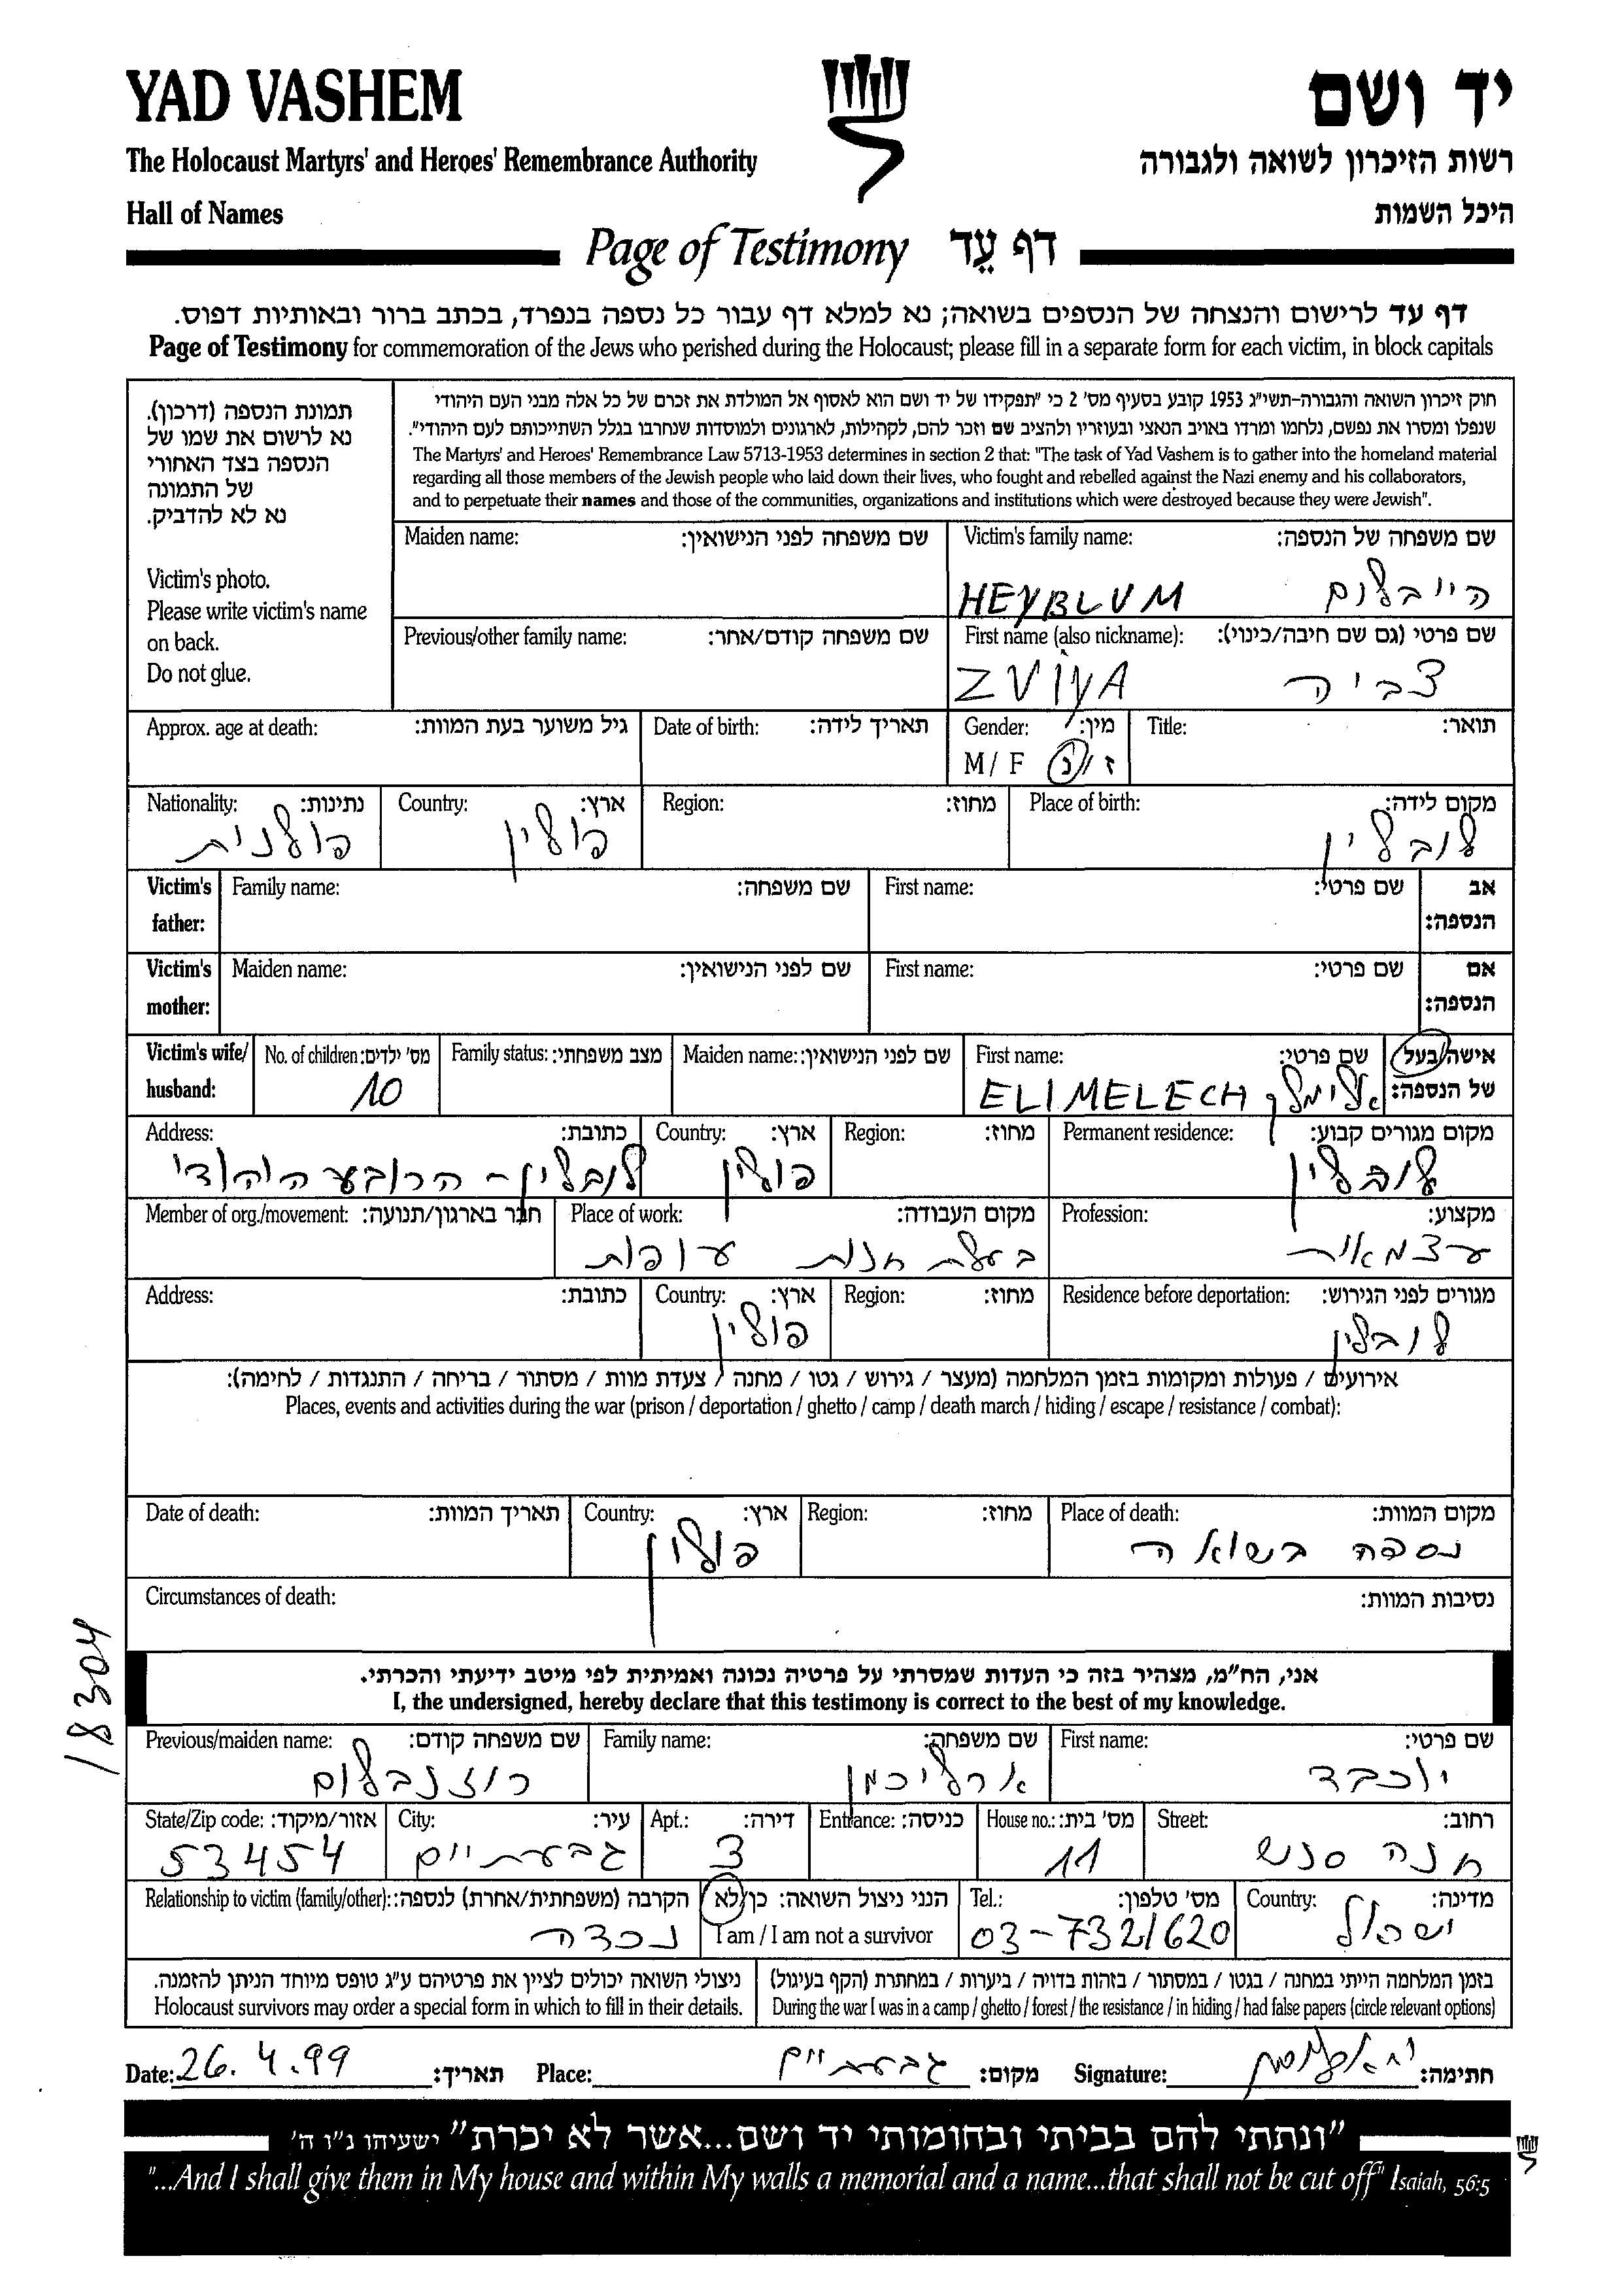 YAD VASHEM
יד ושם
The Holocaust Martyrs' and Heroes' Remembrance Authority
רשות הזיכרון לשואה ולגבורה
Hall of Names
היכל השמות
Page of Testimony דף עֵד
דף עד לרישום והנצחה של הנספים בשואה; נא למלא דף עבור כל נספה בנפרד, בכתב ברור ובאותיות דפוס.
Page of Testimony for commemoration of the Jews who perished during the Holocaust; please fill in a separate form for each victim, in block capitals
תמונת הנספה (דרכון).
נא לרשום את שמו של
הנספה בצד האחורי
של התמונה
נא לא להדביק.
Victim's photo.
Please write victim's name
on back.
Do not glue.
חוק זיכרון השואה והגבורה-תשי"ג 1953 קובע בסעיף מס' 2 כי "תפקידו של יד ושם הוא לאסוף אל המולדת את זכרם של כל אלה מבני העם היהודי
שנפלו ומסרו את נפשם, נלחמו ומרדו באויב הנאצי ובעוזריו ולהציב שם וזכר להם, לקהילות, לארגונים ולמוסדות שנחרבו בגלל השתייכותם לעם היהודי".
The Martyrs' and Heroes' Remembrance Law 5713-1953 determines in section 2 that: "The task of Yad Vashem is to gather into the homeland material
regarding all those members of the Jewish people who laid down their lives, who fought and rebelled against the Nazi enemy and his collaborators,
and to perpetuate their names and those of the communities, organizations and institutions which were destroyed because they were Jewish".
Victim's family name: שם משפחה של הנספה:
HEYBLUM הייבלום
Maiden name: שם משפחה לפני הנישואין:
First name (also nickname): שם פרטי (גם שם חיבה/כינוי):
ZVIYA צביה
Previous/other family name: שם משפחה קודם/אחר:
Title: תואר:
Gender: מין:
M / F ז / נ
Date of birth: תאריך לידה:
Approx. age at death: גיל משוער בעת המוות:
Place of birth: מקום לידה:
לובלין
Region: מחוז:
Country: ארץ:
פולין
Nationality: נתינות:
פולנית
Victim's father: אב הנספה:
First name: שם פרטי:
Family name: שם משפחה:
Victim's mother: אם הנספה:
First name: שם פרטי:
Maiden name: שם לפני הנישואין:
Victim's wife/ husband: אישה/בעל של הנספה:
First name: שם פרטי:
ELIMELECH אלימלך
Maiden name: שם לפני הנישואין:
Family status: מצב משפחתי:
No. of children: מס' ילדים:
10
Permanent residence: מקום מגורים קבוע:
לובלין
Region: מחוז:
Country: ארץ:
פולין
Address: כתובת:
לובלין - הרובע היהודי
Profession: מקצוע:
עצמאית
Place of work: מקום העבודה:
בעלת חנות עופות
Member of org./movement: חבר בארגון/תנועה:
Residence before deportation: מגורים לפני הגירוש:
לובלין
Region: מחוז:
Country: ארץ:
פולין
Address: כתובת:
אירועים / פעולות ומקומות בזמן המלחמה (מעצר / גירוש / גטו / מחנה / צעדת מוות / מסתור / בריחה / התנגדות / לחימה):
Places, events and activities during the war (prison / deportation / ghetto / camp / death march / hiding / escape / resistance / combat):
Place of death: מקום המוות:
נספה בשואה
Region: מחוז:
Country: ארץ:
פולין
Date of death: תאריך המוות:
Circumstances of death: נסיבות המוות:
18304
אני, הח"מ, מצהיר בזה כי העדות שמסרתי על פרטיה נכונה ואמיתית לפי מיטב ידיעתי והכרתי.
I, the undersigned, hereby declare that this testimony is correct to the best of my knowledge.
First name: שם פרטי:
יוכבד
Family name: שם משפחה:
ארליכמן
Previous/maiden name: שם משפחה קודם:
רוזנבלום
Street: רחוב:
חנה סנש
House no.: מס' בית:
11
Entrance: כניסה:
Apt.: דירה:
3
City: עיר:
גבעתיים
State/Zip code: אזור/מיקוד:
53454
Country: מדינה:
ישראל
Tel.: מס' טלפון:
03-7321620
הנני ניצול השואה: כן/לא
I am / I am not a survivor
Relationship to victim (family/other): הקרבה (משפחתית/אחרת) לנספה:
נכדה
בזמן המלחמה הייתי במחנה / בגטו / במסתור / בזהות בדויה / ביערות / במחתרת (הקף בעיגול)
During the war I was in a camp / ghetto / forest / the resistance / in hiding / had false papers (circle relevant options)
ניצולי השואה יכולים לציין את פרטיהם ע"ג טופס מיוחד הניתן להזמנה.
Holocaust survivors may order a special form in which to fill in their details.
Date: 26.4.99 תאריך: Place: גבעתיים מקום: Signature: חתימה:
"ונתתי להם בביתי ובחומותי יד ושם...אשר לא יכרת" ישעיהו נ"ו ה'
"...And I shall give them in My house and within My walls a memorial and a name...that shall not be cut off" Isaiah, 56:5